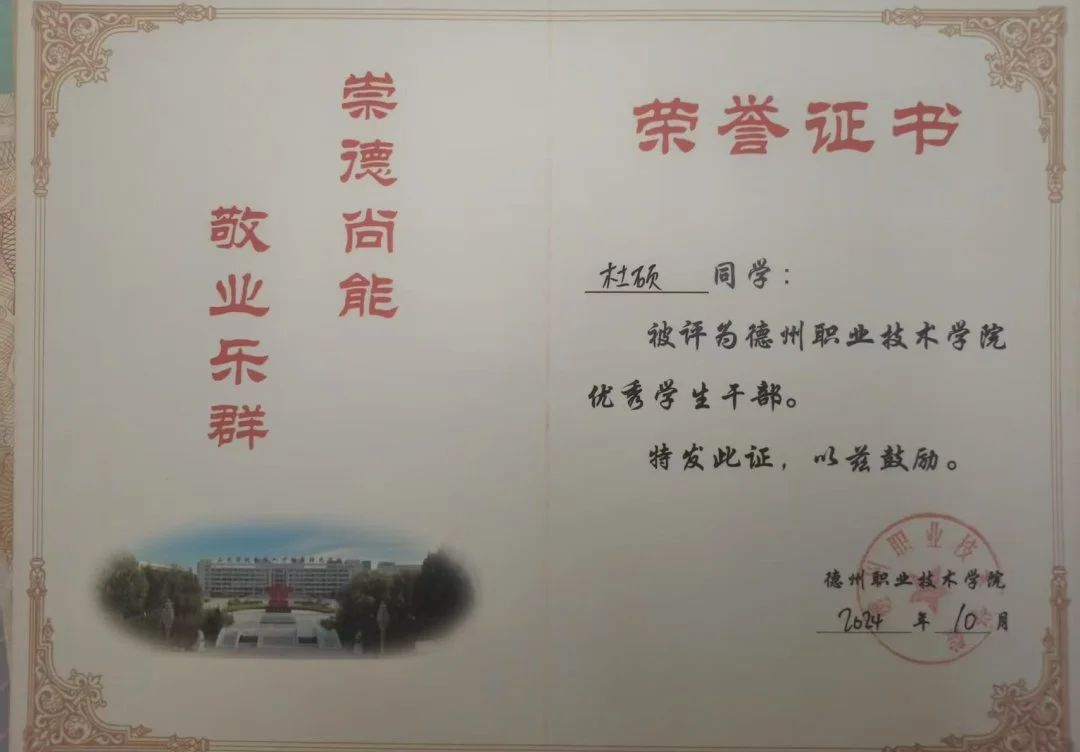 崇德尚能
敬业乐群
荣誉证书
杜硕 同学：
被评为德州职业技术学院
优秀学生干部。
特发此证，以兹鼓励。
德州职业技术学院
2024 年 10 月